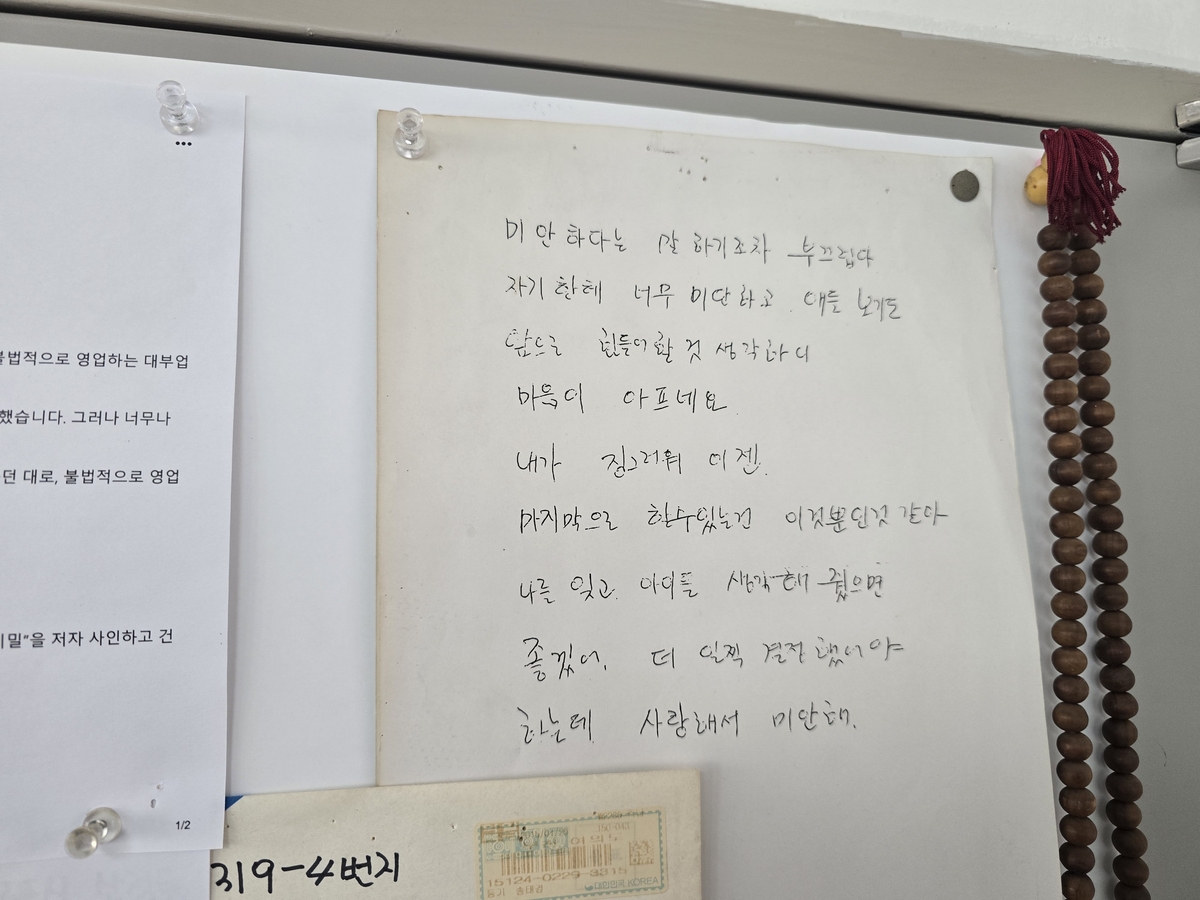 불법적으로 영업하는 대부업
했습니다. 그러나 너무나
던 대로, 불법적으로 영업
밀"을 저자 사인하고 건
1/2
미안하다는 말 하기조차 부끄럽다
자기한테 너무 미안하고. 애들 보기도
앞으로 힘들어할 것 생각하니
마음이 아프네요.
내가 징그러워 이젠.
마지막으로 할수있는건 이것뿐인것 같아
나를 잊고. 아이들 생각해 줬으면
좋겠어. 더 일찍 결정했어야
하는데 사랑해서 미안해.
319-4번지
15124-0229-3315
등기
대한민국 KOREA